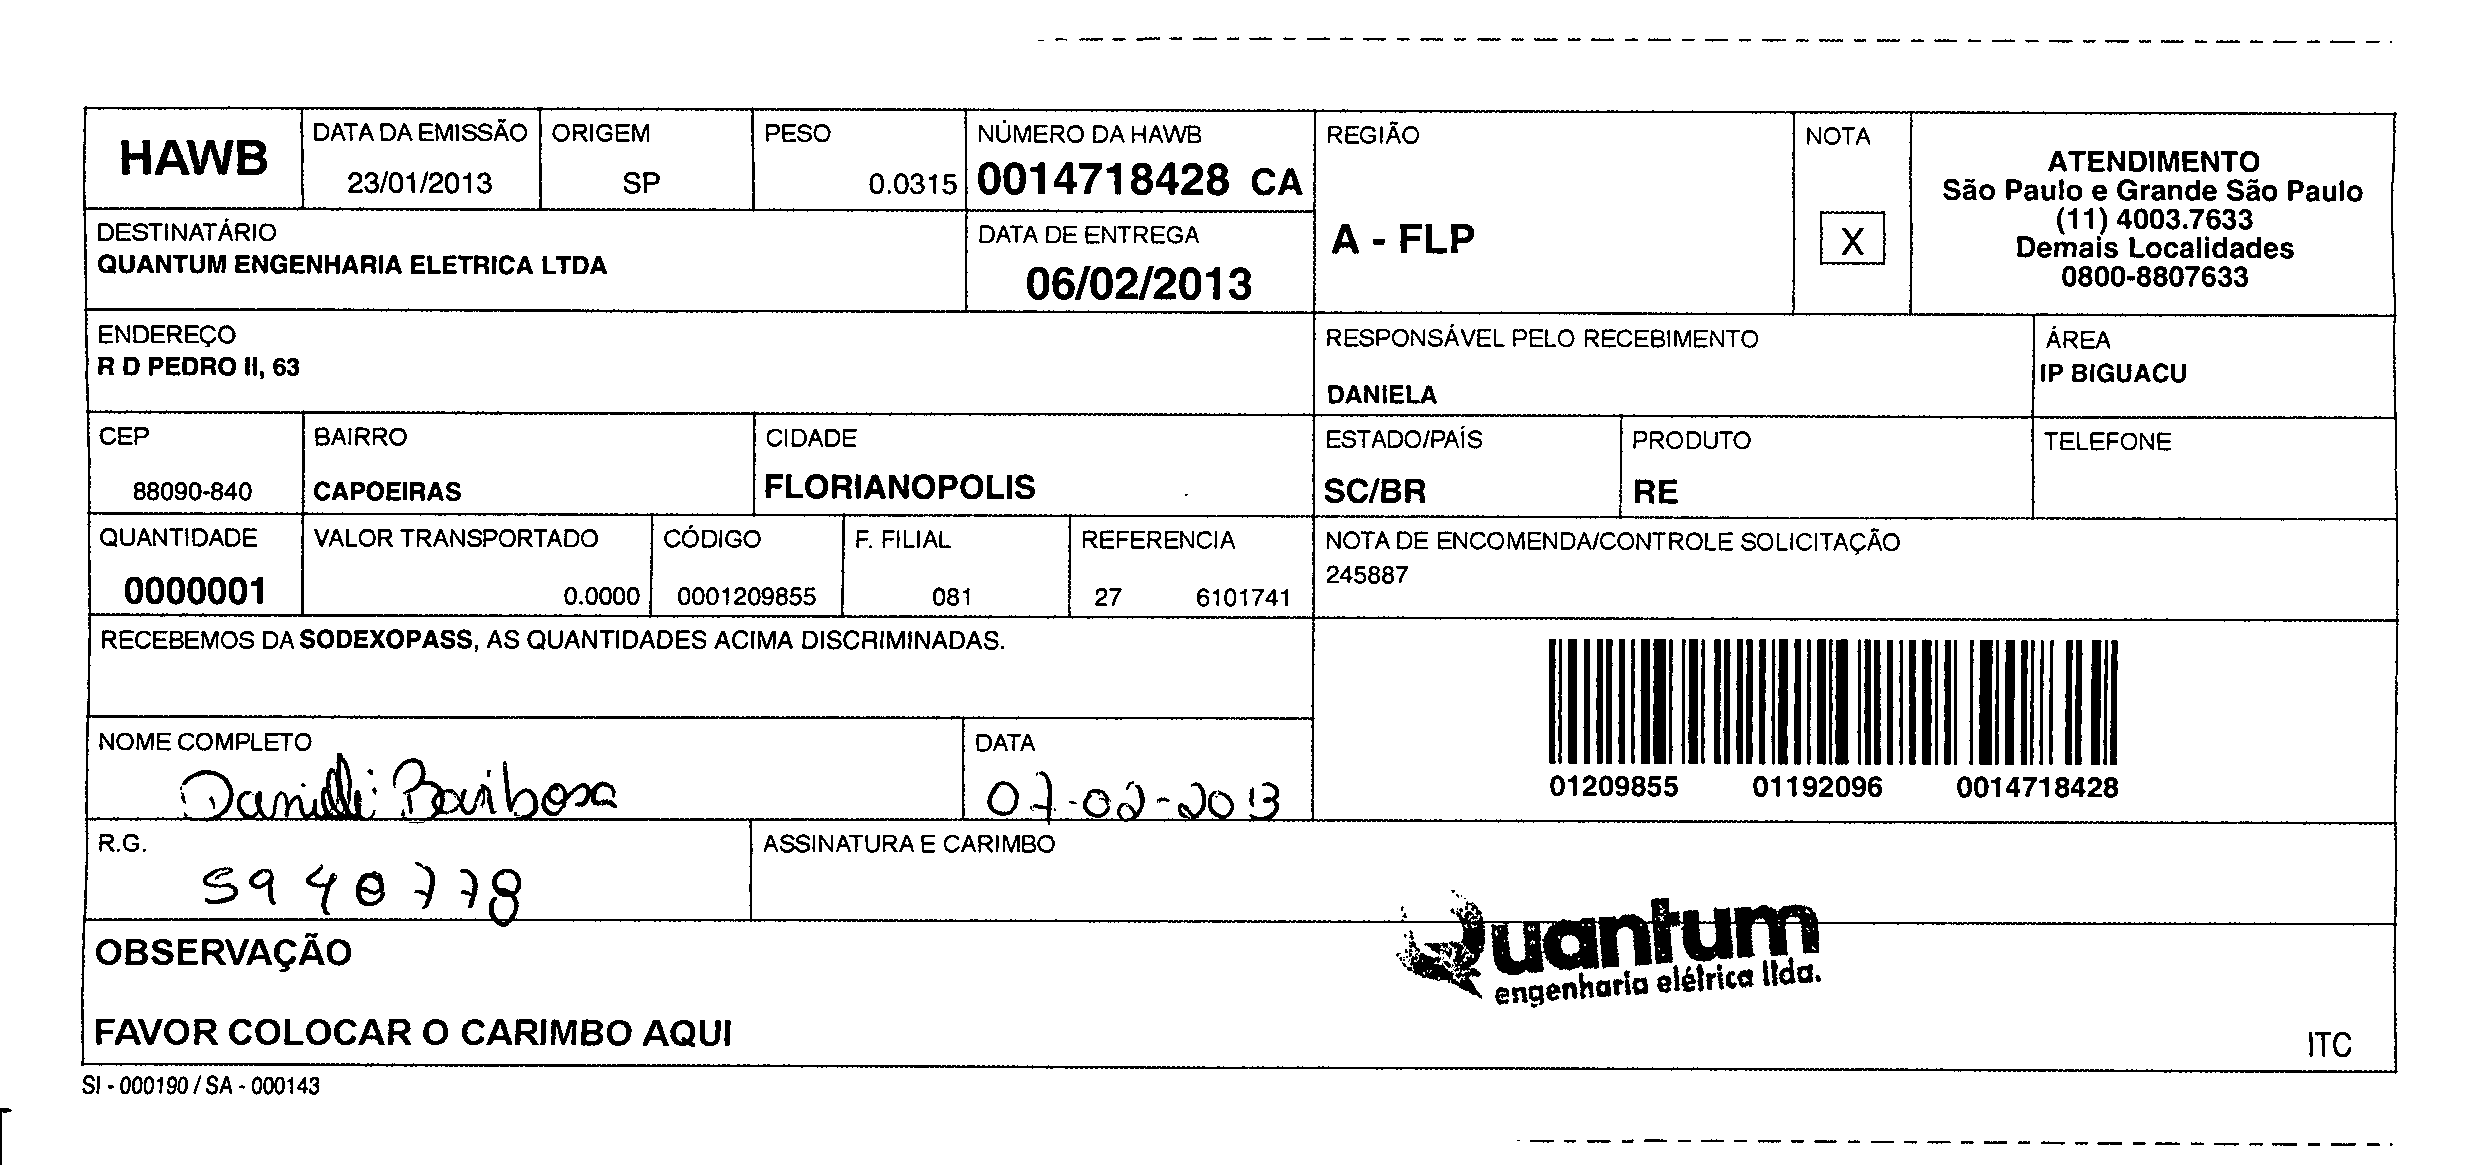 HAWB
DATA DA EMISSÃO
23/01/2013
ORIGEM
SP
PESO
0.0315
NÚMERO DA HAWB
0014718428 CA
REGIÃO
A - FLP
NOTA
X
ATENDIMENTO
São Paulo e Grande São Paulo
(11) 4003.7633
Demais Localidades
0800-8807633
DESTINATÁRIO
QUANTUM ENGENHARIA ELETRICA LTDA
DATA DE ENTREGA
06/02/2013
ENDEREÇO
R D PEDRO II, 63
RESPONSÁVEL PELO RECEBIMENTO
DANIELA
ÁREA
IP BIGUACU
CEP
88090-840
BAIRRO
CAPOEIRAS
CIDADE
FLORIANOPOLIS
ESTADO/PAÍS
SC/BR
PRODUTO
RE
TELEFONE
QUANTIDADE
0000001
VALOR TRANSPORTADO
0.0000
CÓDIGO
0001209855
F. FILIAL
081
REFERENCIA
27 6101741
NOTA DE ENCOMENDA/CONTROLE SOLICITAÇÃO
245887
RECEBEMOS DA SODEXOPASS, AS QUANTIDADES ACIMA DISCRIMINADAS.
01209855 01192096 0014718428
NOME COMPLETO
Danielli Barbosa
DATA
07-02-2013
R.G.
5940778
ASSINATURA E CARIMBO
Quantum
engenharia elétrica ltda.
OBSERVAÇÃO
FAVOR COLOCAR O CARIMBO AQUI
ITC
SI - 000190 / SA - 000143